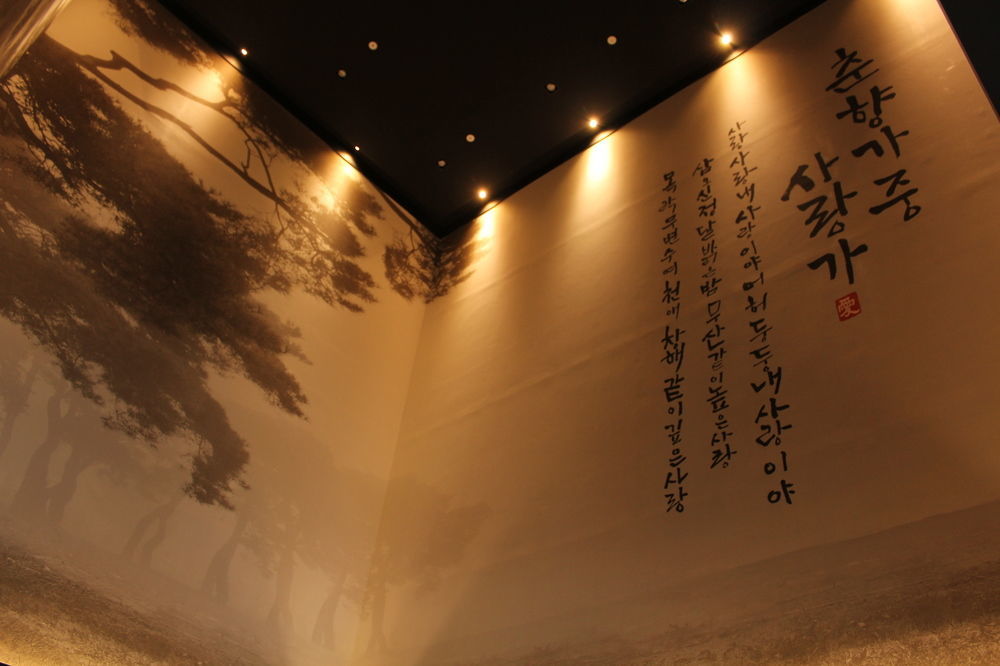 춘향가 중
사랑가
愛
사랑사랑 내 사랑이야 어허 두둥둥 내 사랑이야
삼오신정 달 밝은 밤 무산같이 높은 사랑
목락무변수여천에 창해같이 깊은 사랑